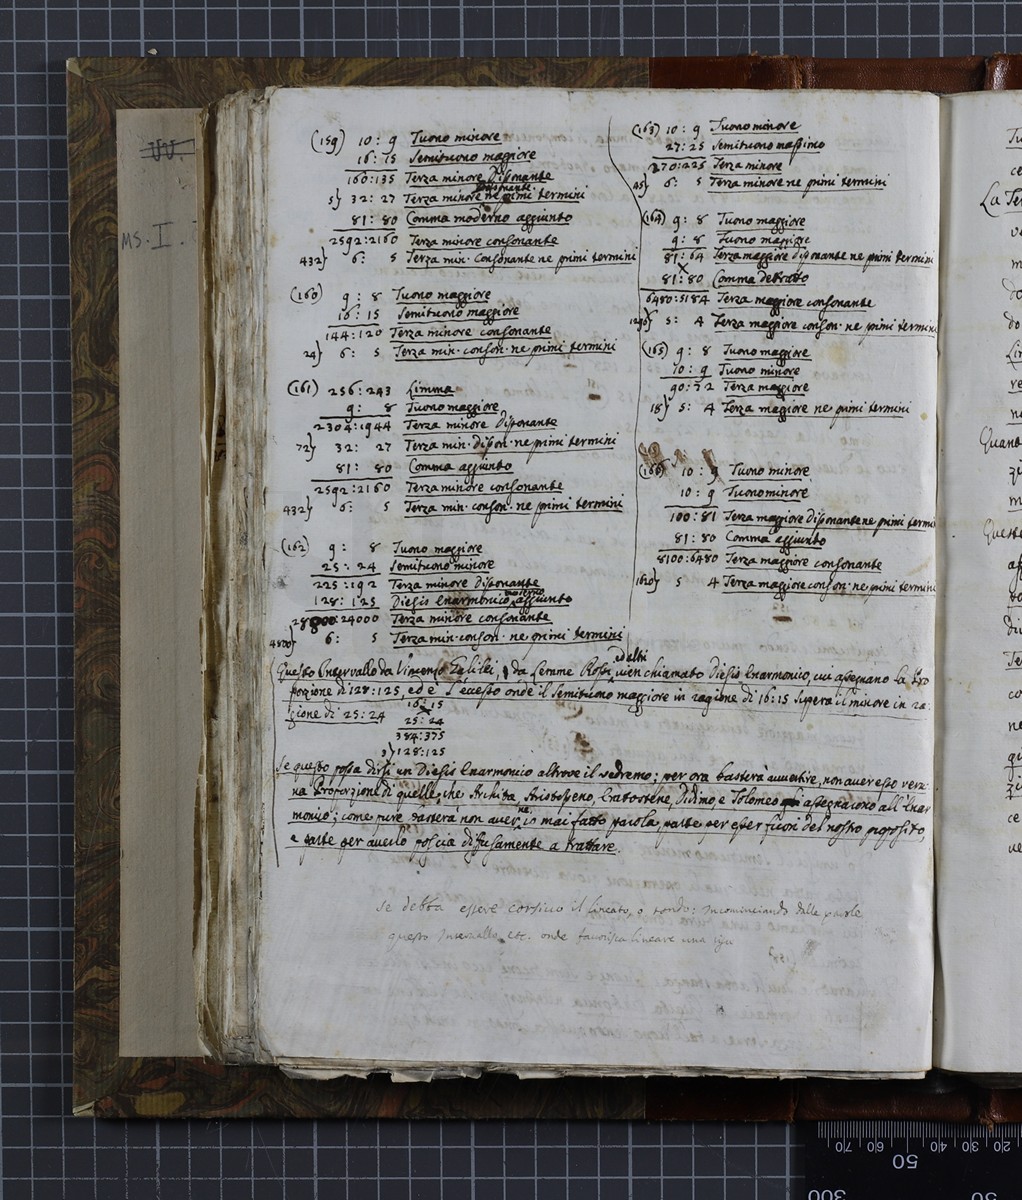 VV.
MS. I.
(159) 10 : 9 Tuono minore
16 : 15 Semituono maggiore
160:135 Terza minore Dissonante
dissonante
5} 32 : 27 Terza minore ne primi termini
81 : 80 Comma moderno aggiunto
2592:2160 Terza minore consonante
432} 6 : 5 Terza min. Consonante ne primi termini
(160) 9 : 8 Tuono maggiore
16 : 15 Semituono maggiore
144:120 Terza minore consonante
24} 6 : 5 Terza min. conson. ne primi termini
(161) 256:243 Limma
9 : 8 Tuono maggiore
2304:1944 Terza minore Dissonante
72} 32 : 27 Terza min. disson. ne primi termini
81 : 80 Comma aggiunto
2592:2160 Terza minore consonante
432} 6 : 5 Terza min. conson. ne primi termini
(162) 9 : 8 Tuono maggiore
25 : 24 Semituono minore
225:192 Terza minore Dissonante
128:125 Diesis Enarmonico moderno aggiunto
28800:24000 Terza minore consonante
4800} 6 : 5 Terza min. conson. ne primi termini
(163) 10 : 9 Tuono minore
27:25 Semituono massimo
270:225 Terza minore
45} 6 : 5 Terza minore ne primi termini
(164) 9 : 8 Tuono maggiore
9 : 8 Tuono maggiore
81:64 Terza maggiore dissonante ne primi termini
81:80 Comma detratto
6480:5184 Terza maggiore consonante
1296} 5 : 4 Terza maggiore conson. ne primi termini
(165) 9 : 8 Tuono maggiore
10 : 9 Tuono minore
90:72 Terza maggiore
18} 5 : 4 Terza maggiore ne primi termini
(166) 10 : 9 Tuono minore
10 : 9 Tuono minore
100:81 Terza maggiore dissonante ne primi termi
81:80 Comma aggiunto
8100:6480 Terza maggiore consonante
1620} 5 4 Terza maggiore conson. ne primi termini
Questo Intervallo da Vincenzo Galilei, da Lemme Rossi, ed altri vien chiamato Diesis Enarmonio, cui assegnano la Pro
porzione di 128:125, ed è l'ecesso onde il Semituono maggiore in ragione di 16:15 supera il minore in ra-
gione di 25:24
16:15
25:24
384:375
3}128:125
Se questo possa dirsi un Diesis Enarmonico altrove il vedremo; per ora basterà avvertire, non aver esso veru-
na Proporzione di quelle, che Archita, Aristosseno, Eratostene, Didimo, e Tolomeo assegnarono all'Enar
monio; come pure basterà non averne io mai fatto parola, parte per esser fuori del nostro proposito,
e parte per averlo poscia diffusamente a trattare.
Se debba essere corsivo il lineato, o tondo; incominciando dalle parole
questo Intervallo etc. onde favorisca lineare una